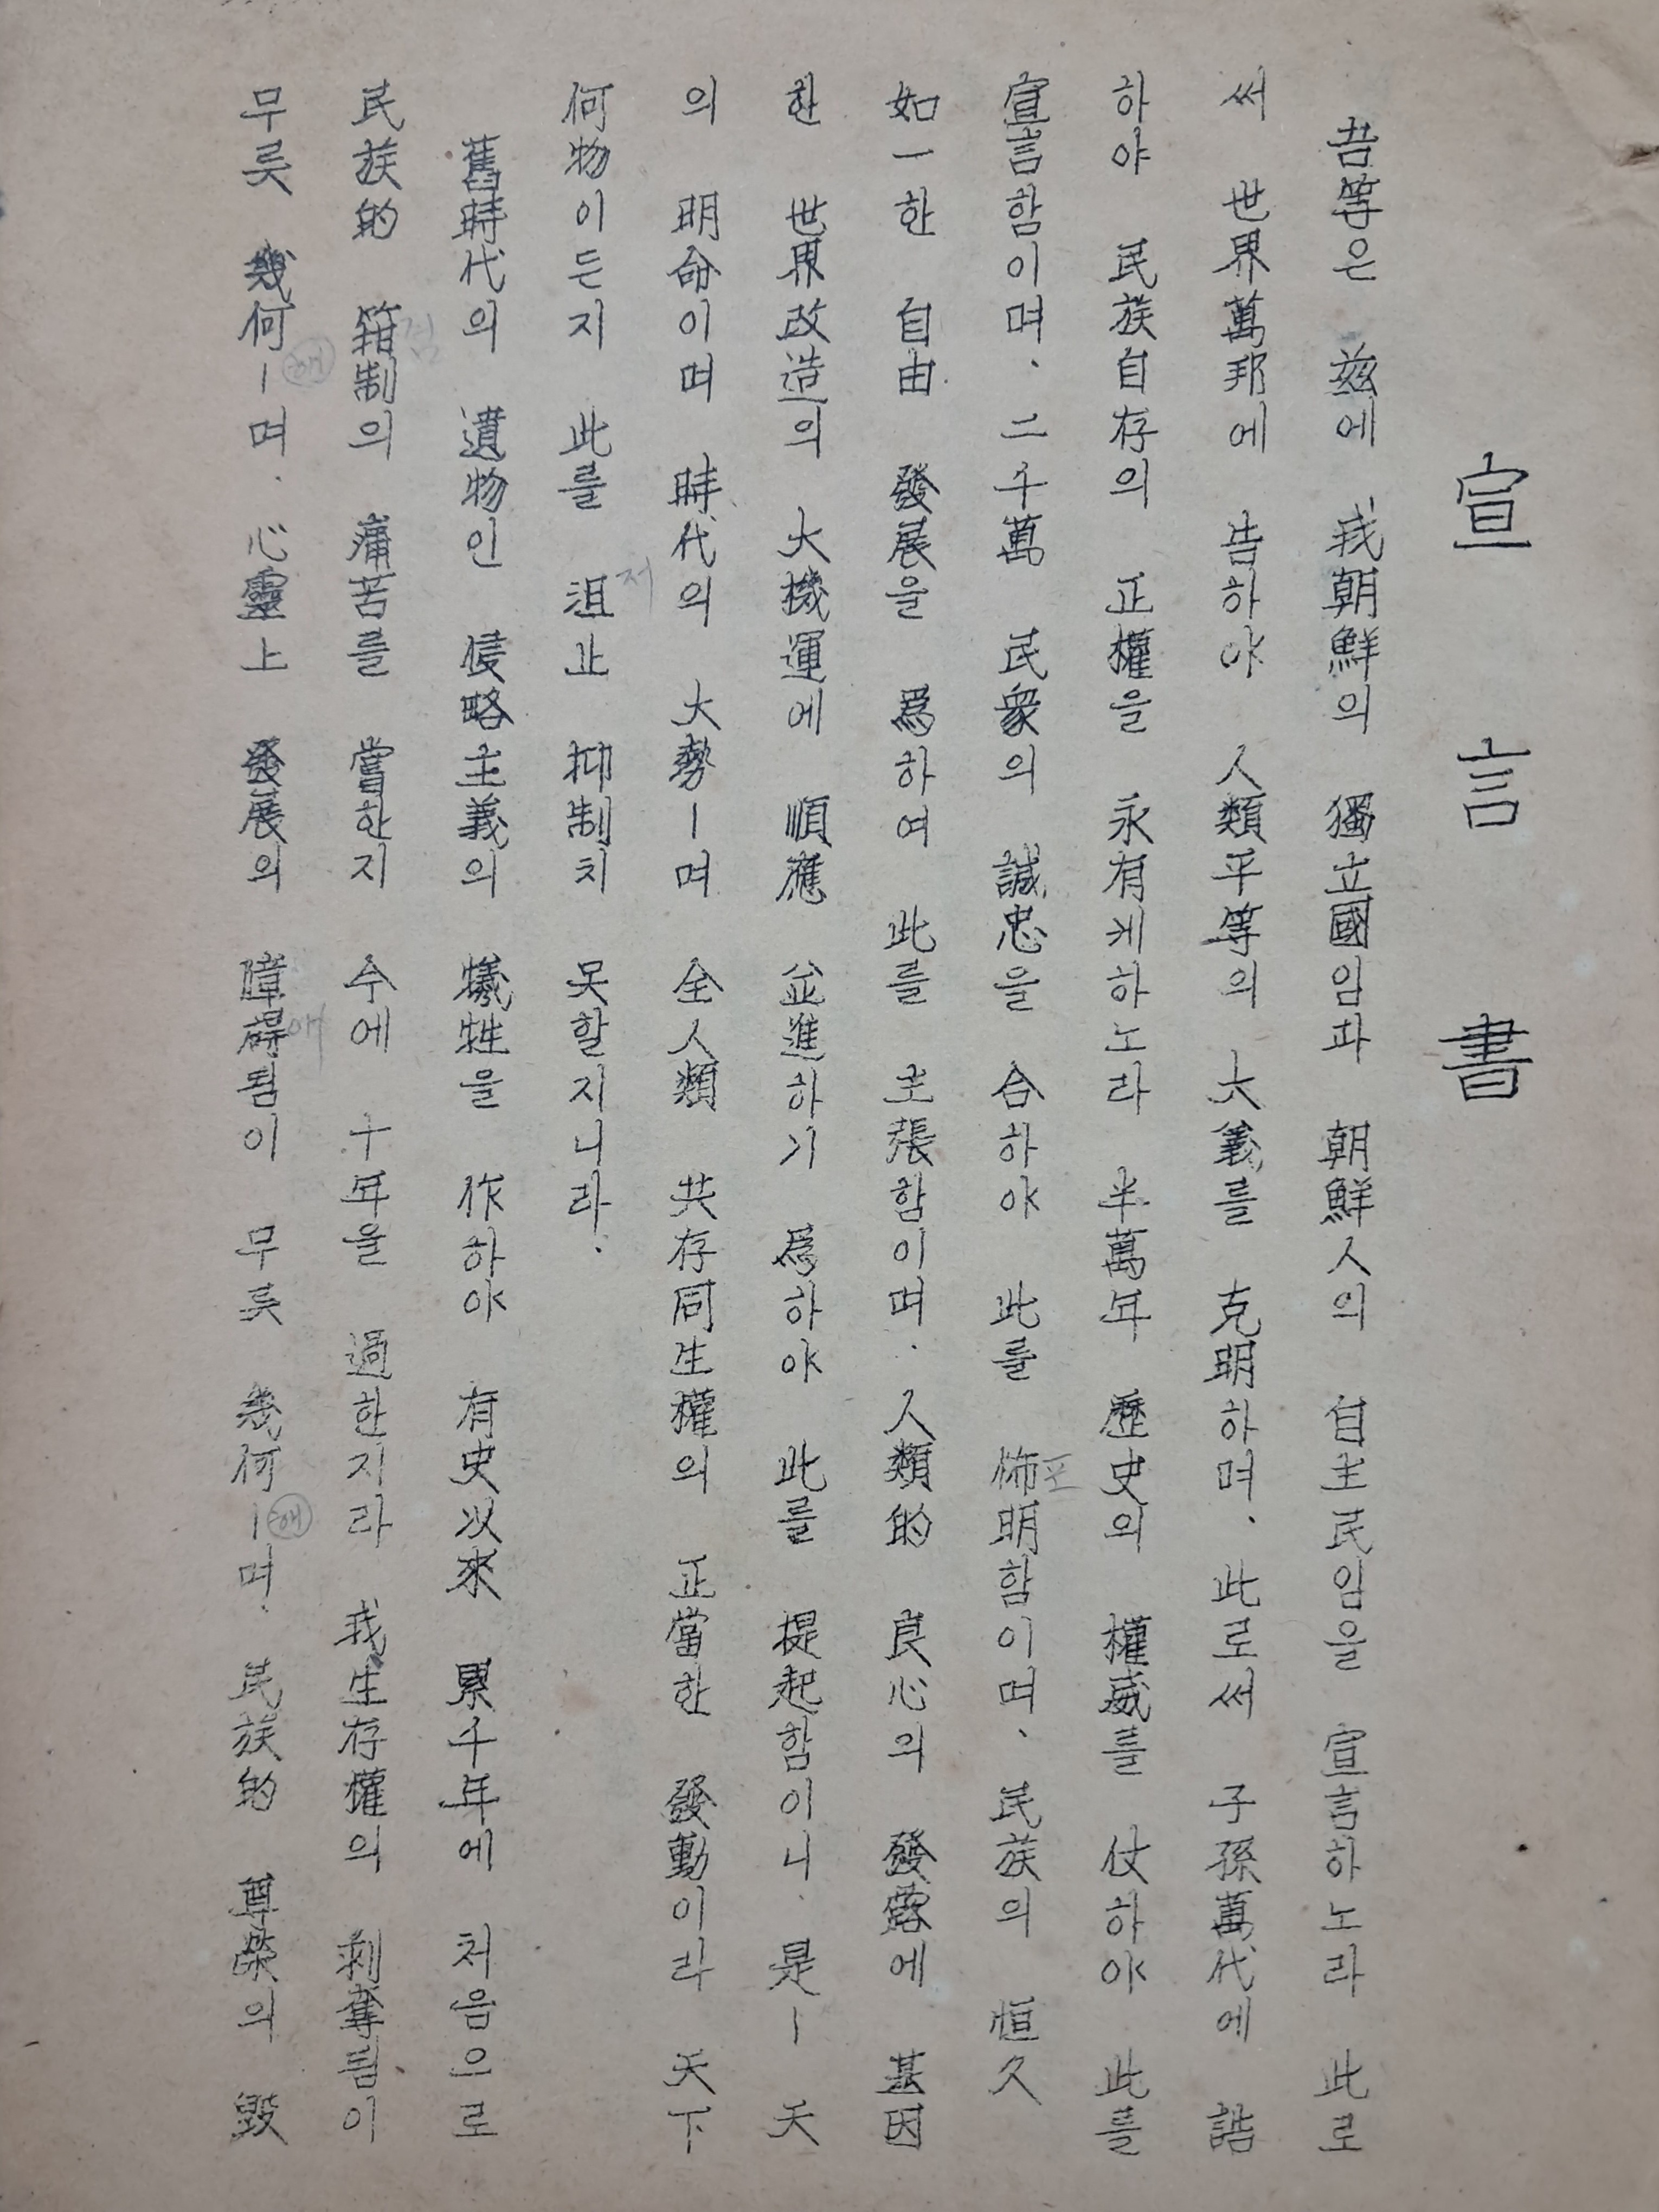 宣言書
吾等은 玆에 我朝鮮의 獨立國임과 朝鮮人의 自主民임을 宣言하노라 此로
써 世界萬邦에 告하야 人類平等의 大義를 克明하며、此로써 子孫萬代에 誥
하야 民族自存의 正權을 永有케하노라 半萬年 歷史의 權威를 仗하야 此를
宣言함이며、二千萬 民衆의 誠忠을 合하야 此를 佈明함이며、民族의 恒久
포
如一한 自由 發展을 爲하여 此를 主張함이며、人類的 良心의 發露에 基因
한 世界改造의 大機運에 順應 並進하기 爲하야 此를 提起함이니、是ㅣ 天
의 明命이며 時代의 大勢ㅣ며 全人類 共存同生權의 正當한 發動이라 天下
何物이든지 此를 沮止 抑制치 못할지니라.
저
舊時代의 遺物인 侵略主義의 犧牲을 作하야 有史以來 累千年에 처음으로
民族的 箝制의 痛苦를 嘗한지 수에 十年을 過한지라 我生存權의 剝奪됨이
겸
무릇 幾何ㅣ며、心靈上 發展의 障碍됨이 무릇 幾何ㅣ며、民族的 尊榮의 毁
해
애
해